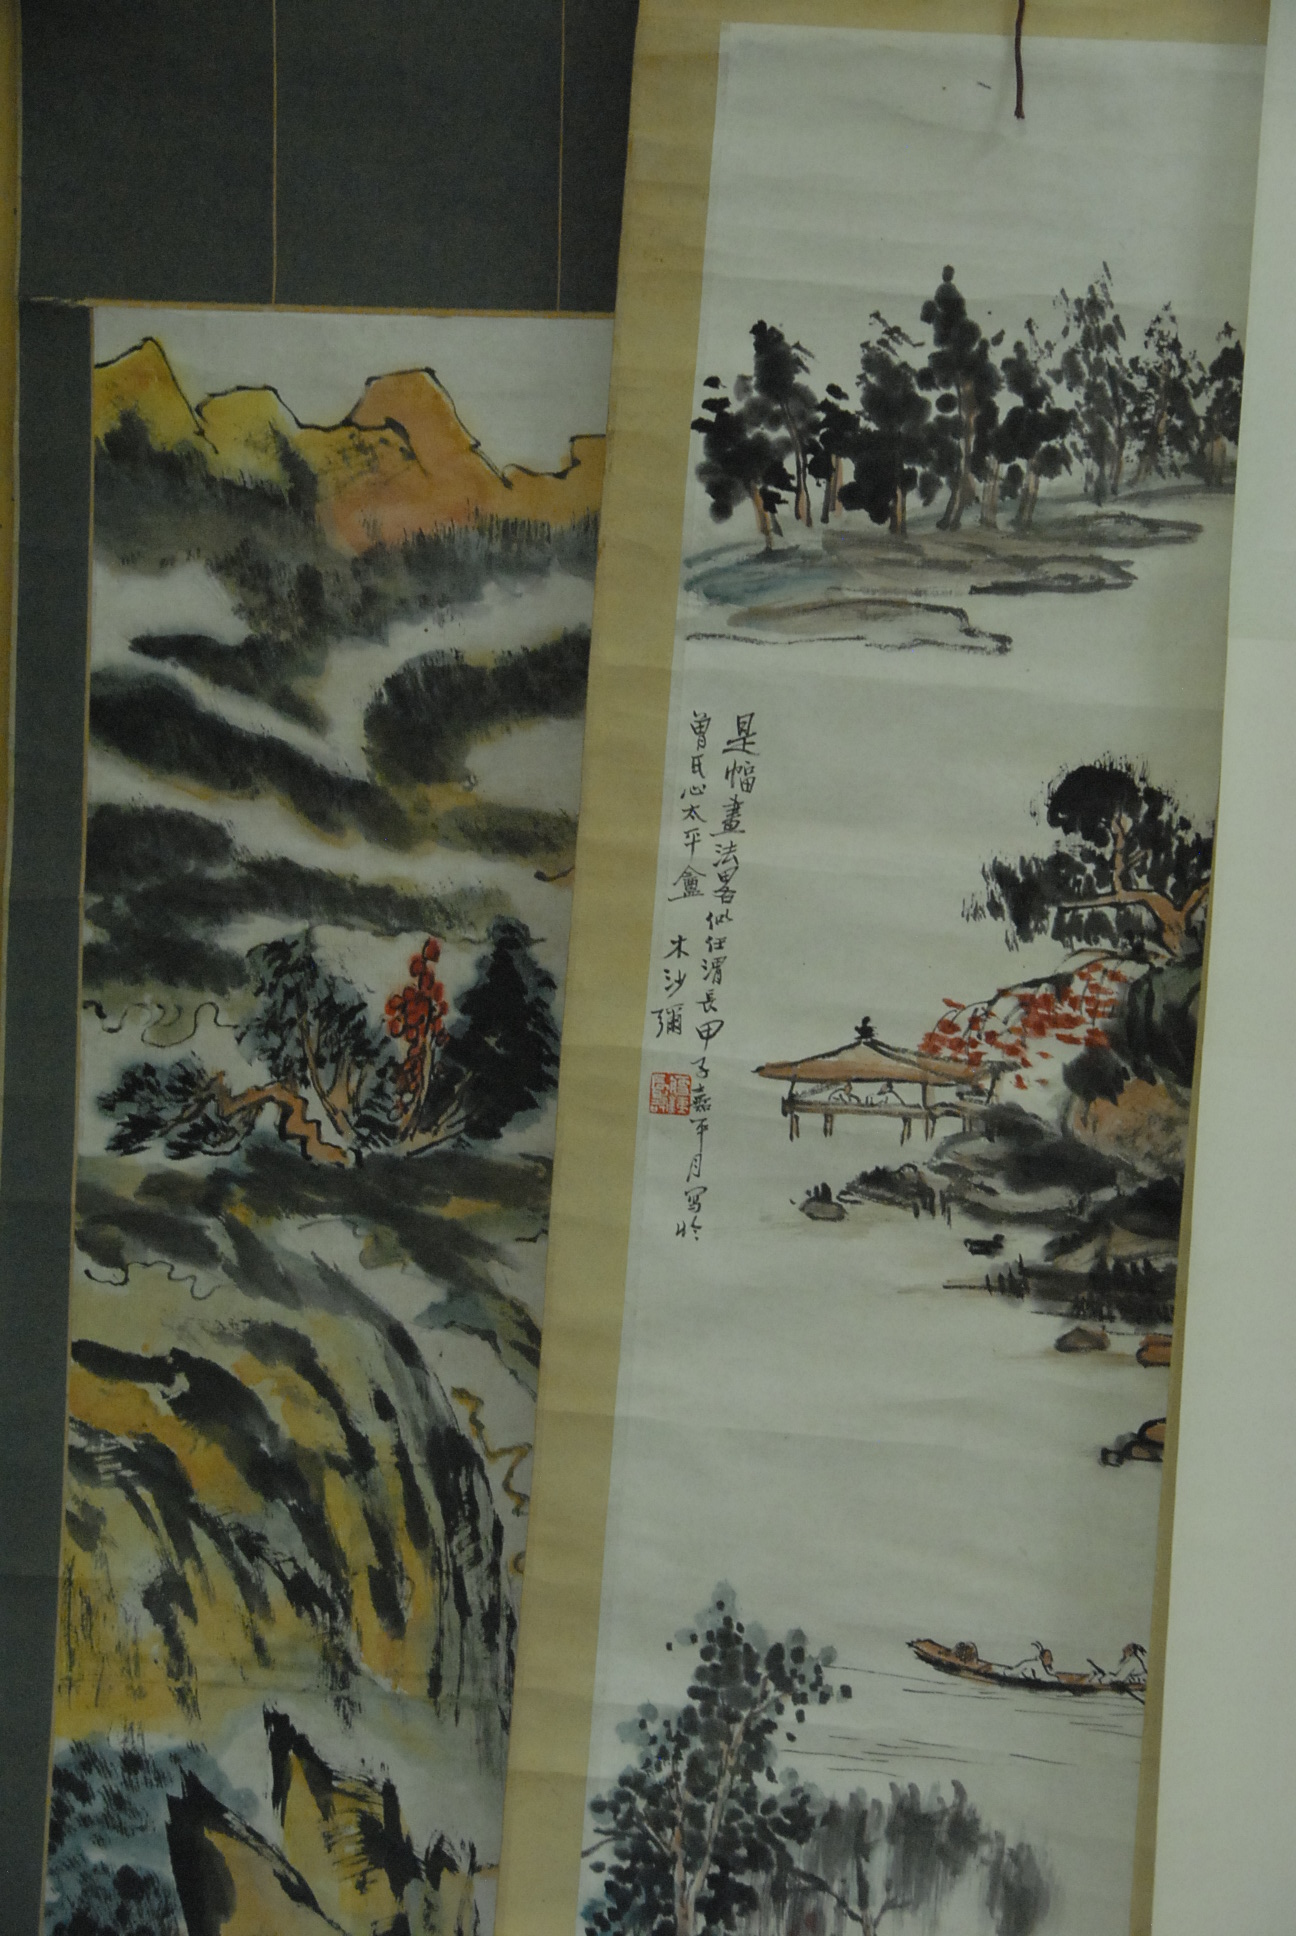 是幅畫法畧似任渭長甲子嘉平月写於
曾氏心太平盦
木沙彌